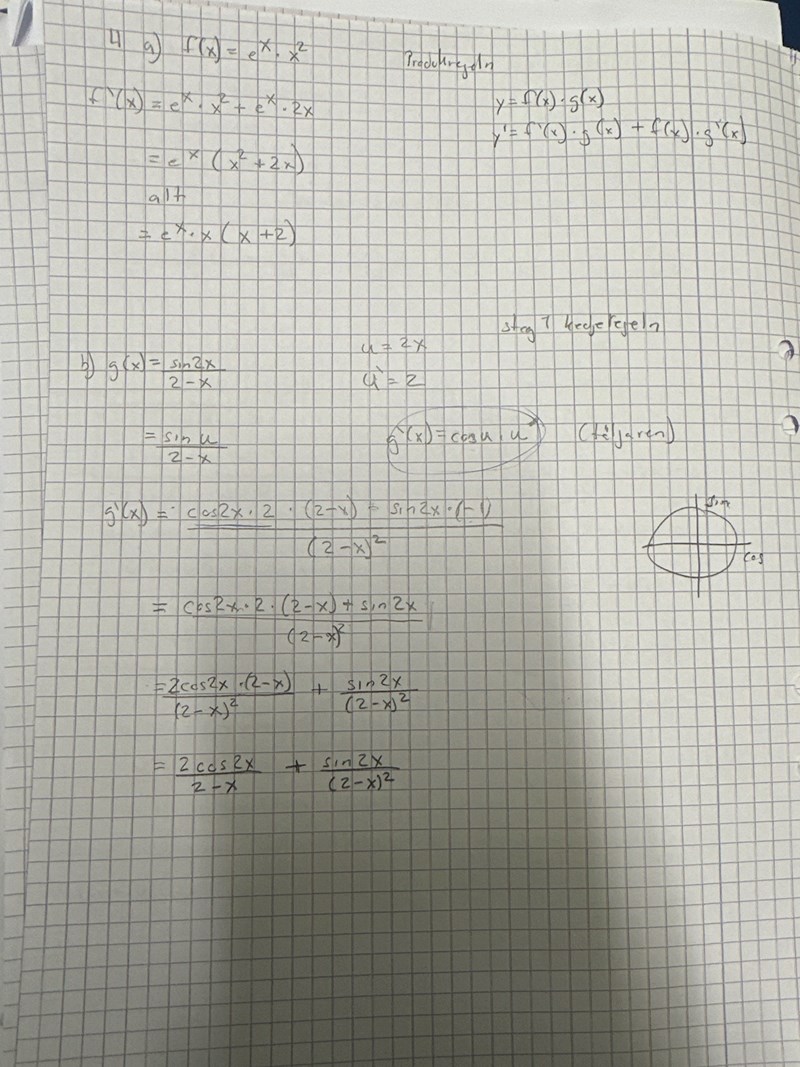 4 a) f(x) = e^x · x^2
Produktregeln
f'(x) = e^x · x^2 + e^x · 2x
y = f(x) · g(x)
y' = f'(x) · g(x) + f(x) · g'(x)
= e^x (x^2 + 2x)
alt
= e^x · x (x + 2)
steg 1 kedjeregeln
b) g(x) = sin2x / 2-x
u = 2x
u' = 2
= sin u / 2-x
g'(x) = cos u · u' (täljaren)
g'(x) = cos2x · 2 · (2-x) - sin2x · (-1) / (2-x)^2
sin
cos
= cos2x · 2 · (2-x) + sin2x / (2-x)^2
= 2cos2x · (2-x) / (2-x)^2 + sin2x / (2-x)^2
= 2cos2x / 2-x + sin2x / (2-x)^2